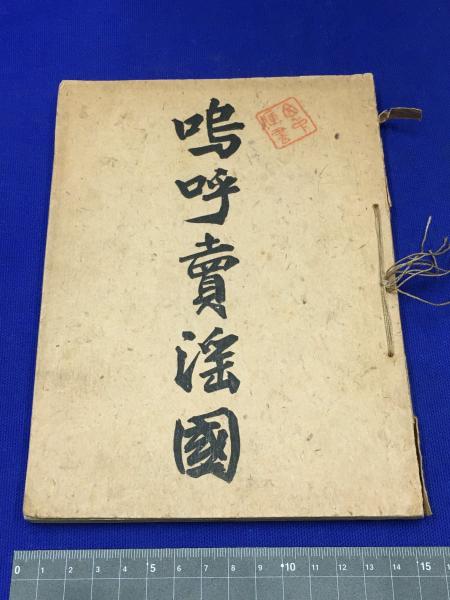 嗚呼賣淫國
0 1 2 3 4 5 6 7 8 9 10 11 12 13 14 15